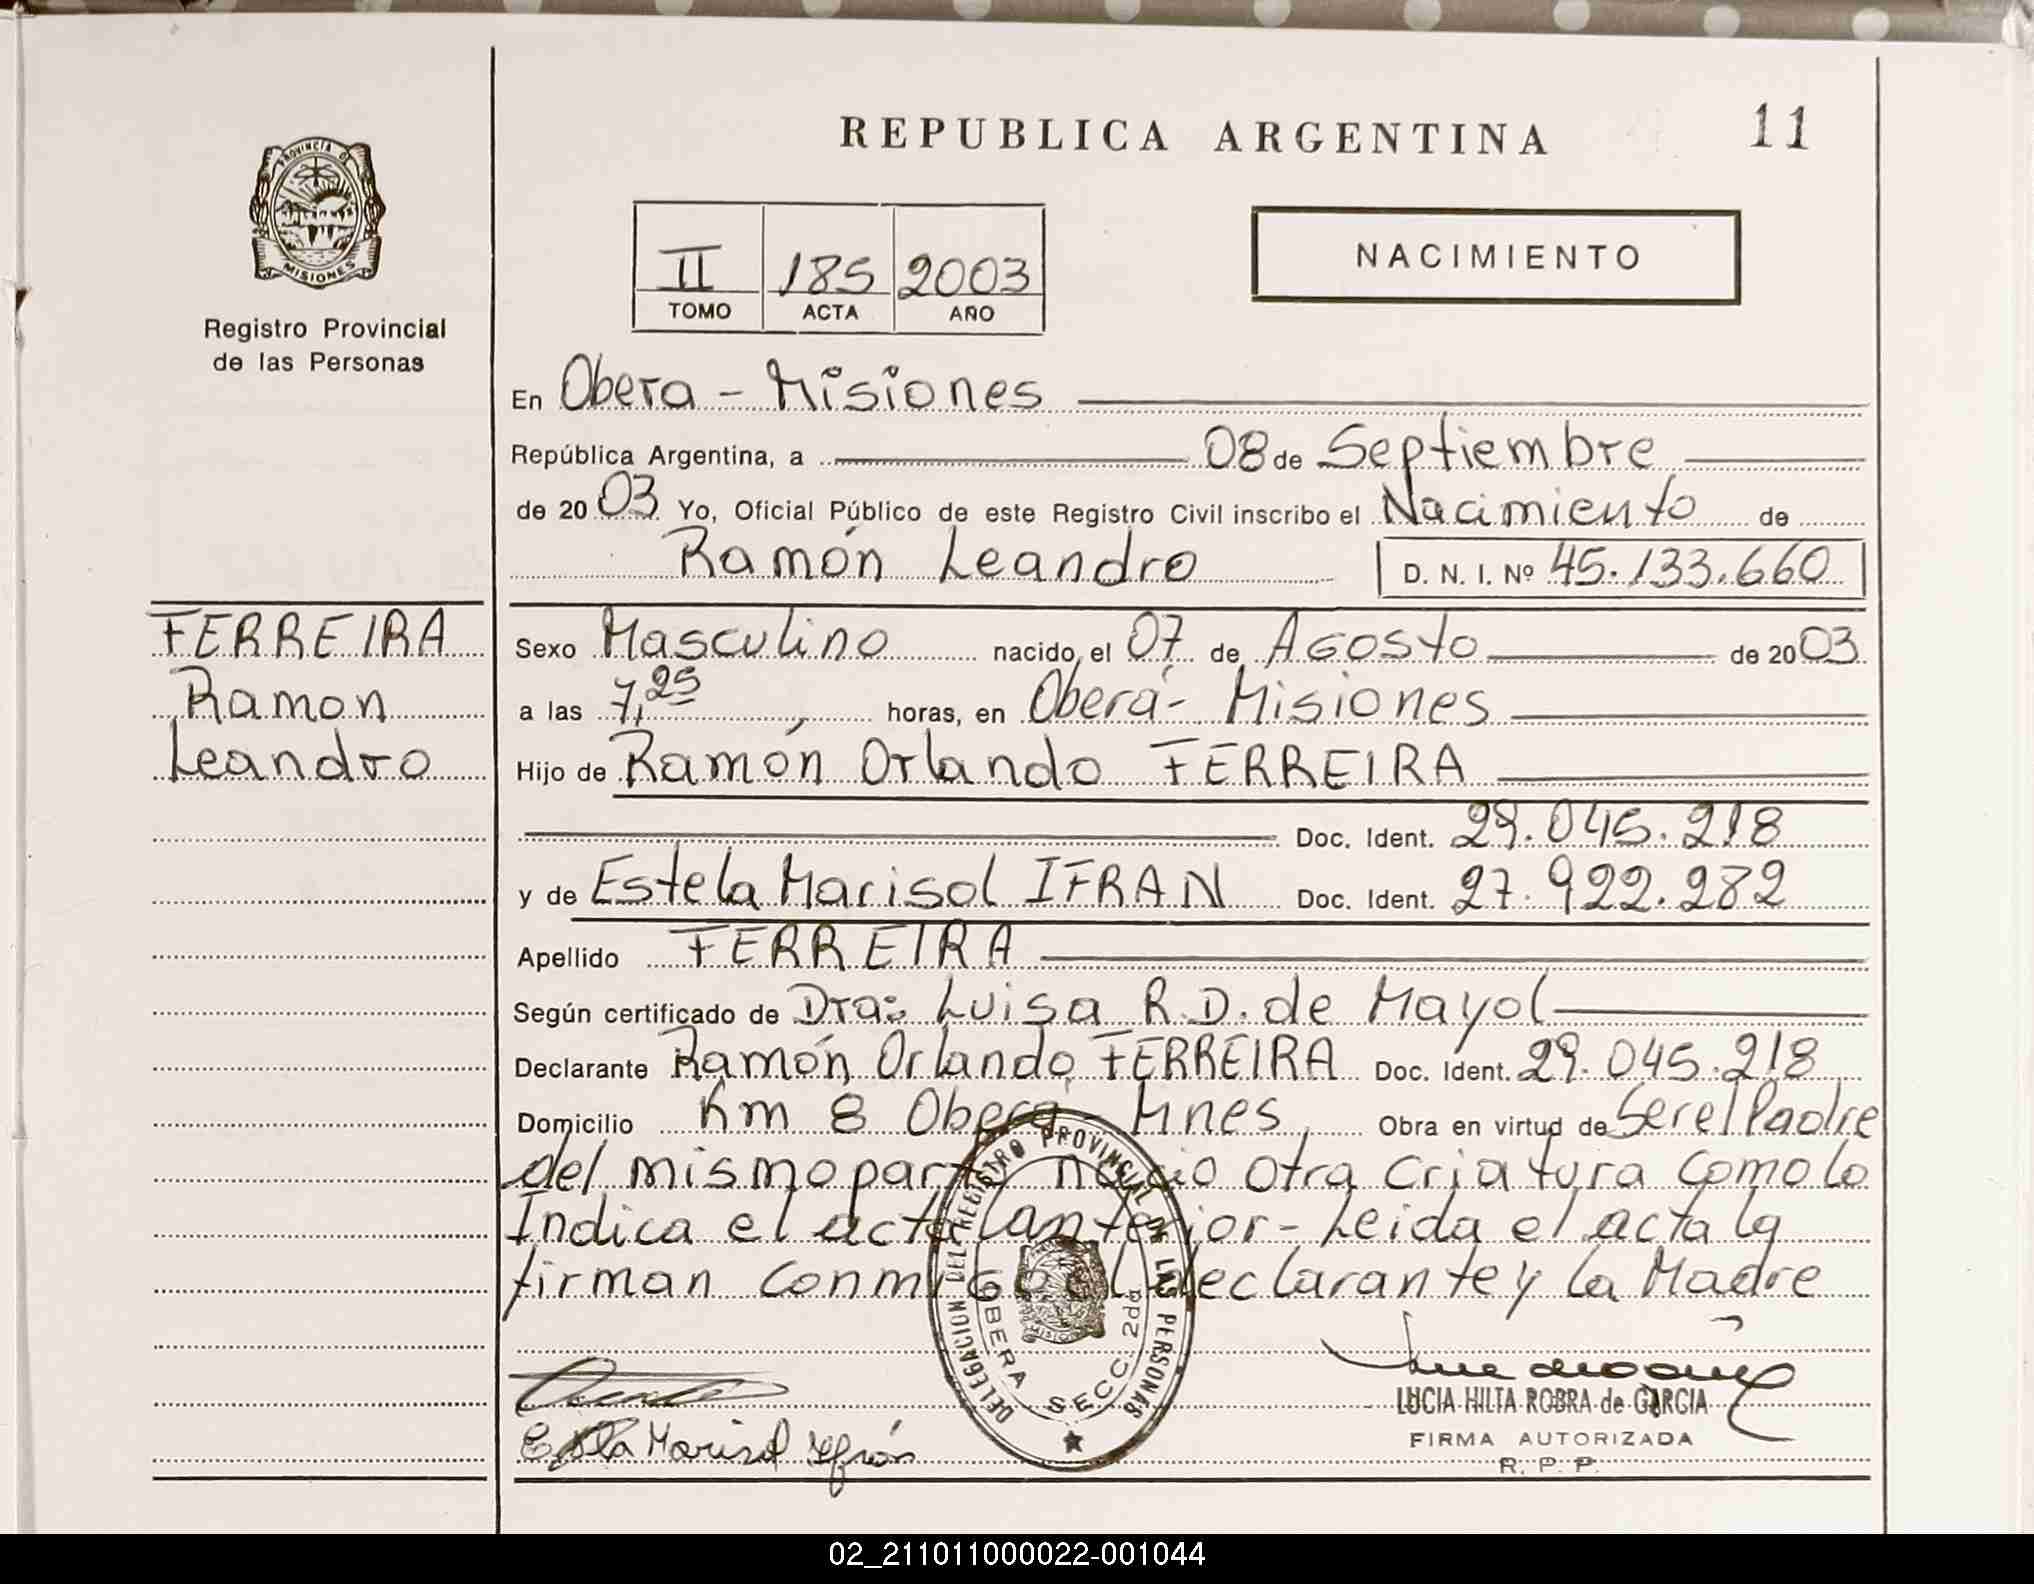 REPUBLICA ARGENTINA
11
PROVINCIA DE
MISIONES
Registro Provincial
de las Personas
II 185 2003
TOMO ACTA AÑO
NACIMIENTO
En Obera - Misiones
República Argentina, a 08 de Septiembre
de 2003 Yo, Oficial Público de este Registro Civil inscribo el Nacimiento de
Ramón Leandro D. N. I. Nº 45.133.660
FERREIRA
Ramon
Leandro
Sexo Masculino nacido el 07 de Agosto de 2003
a las 7,25 horas, en Oberá - Misiones
Hijo de Ramón Orlando FERREIRA
Doc. Ident. 29.045.218
y de Estela Marisol IFRAN Doc. Ident. 27.922.282
Apellido FERREIRA
Según certificado de Dra: Luisa R.D. de Mayol
Declarante Ramón Orlando FERREIRA Doc. Ident. 29.045.218
Domicilio Km 8 Oberá - Mnes Obra en virtud de Ser el Padre
del mismo parto nacio otra criatura como lo
Indica el acta anterior - Leida el acta la
firman conmigo el declarante y la Madre
DELEGACION DEL REGISTRO PROVINCIAL DE LAS PERSONAS
OBERA SECC. 2da
MISIONES
Estela Marisol Ifrán
LUCIA HILTA ROBRA de GARCIA
FIRMA AUTORIZADA
R. P. P.
02_211011000022-001044